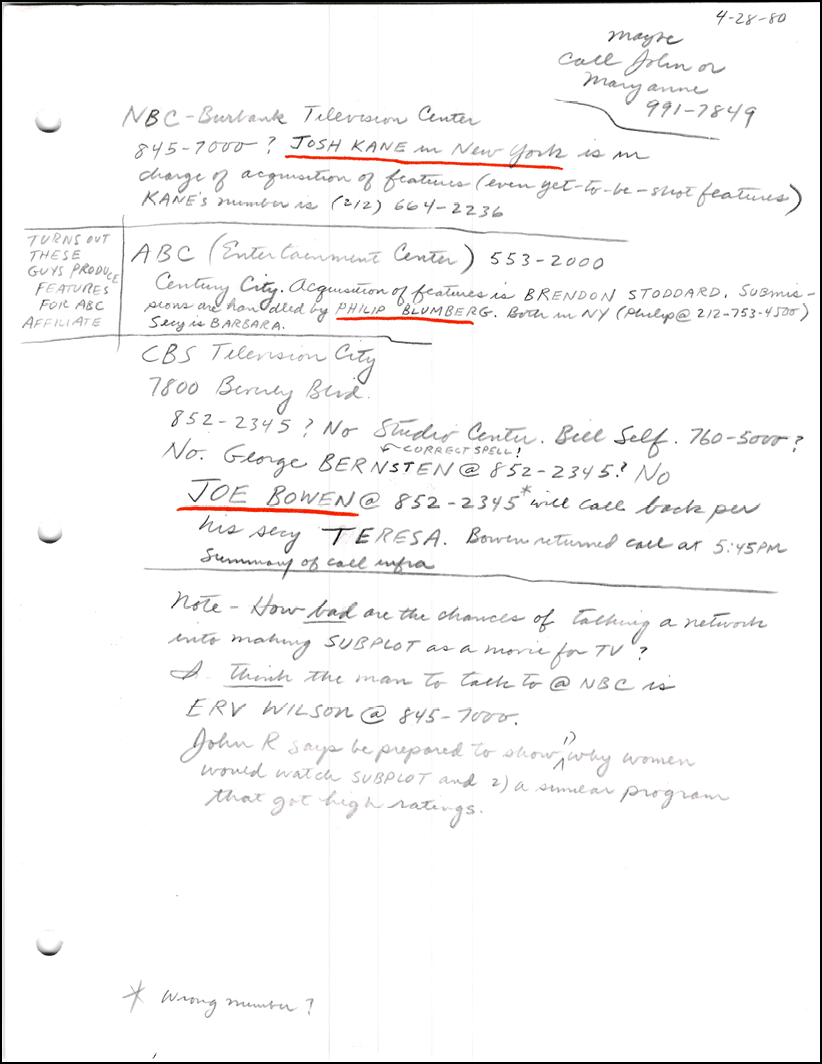 4-28-80
maybe
call John or
Maryanne
991-7849
NBC-Burbank Television Center
845-7000? JOSH KANE in New York is in
charge of acquisition of features (even yet-to-be-shot features)
KANE's number is (212) 664-2236
TURNS OUT
THESE
GUYS PRODUCE
FEATURES
FOR ABC
AFFILIATE
ABC (Entertainment Center) 553-2000
Century City. Acquisition of features is BRENDON STODDARD. Submis-
sions are handled by PHILIP BLUMBERG. Both in NY (Philip@ 212-753-4500)
Secy is BARBARA.
CBS Television City
7800 Beverly Blvd.
852-2345? No Studio Center. Bill Self. 760-5000?
CORRECT SPELL!
No. George BERNSTEN @ 852-2345? No
JOE BOWEN @ 852-2345* will call back per
his secy TERESA. Bowen returned call at 5:45PM
Summary of call infra
Note - How bad are the chances of talking a network
into making SUBPLOT as a movie for TV?
I think the man to talk to @ NBC is
ERV WILSON @ 845-7000.
John R says be prepared to show 1) why women
would watch SUBPLOT and 2) a similar program
that got high ratings.
* Wrong number?